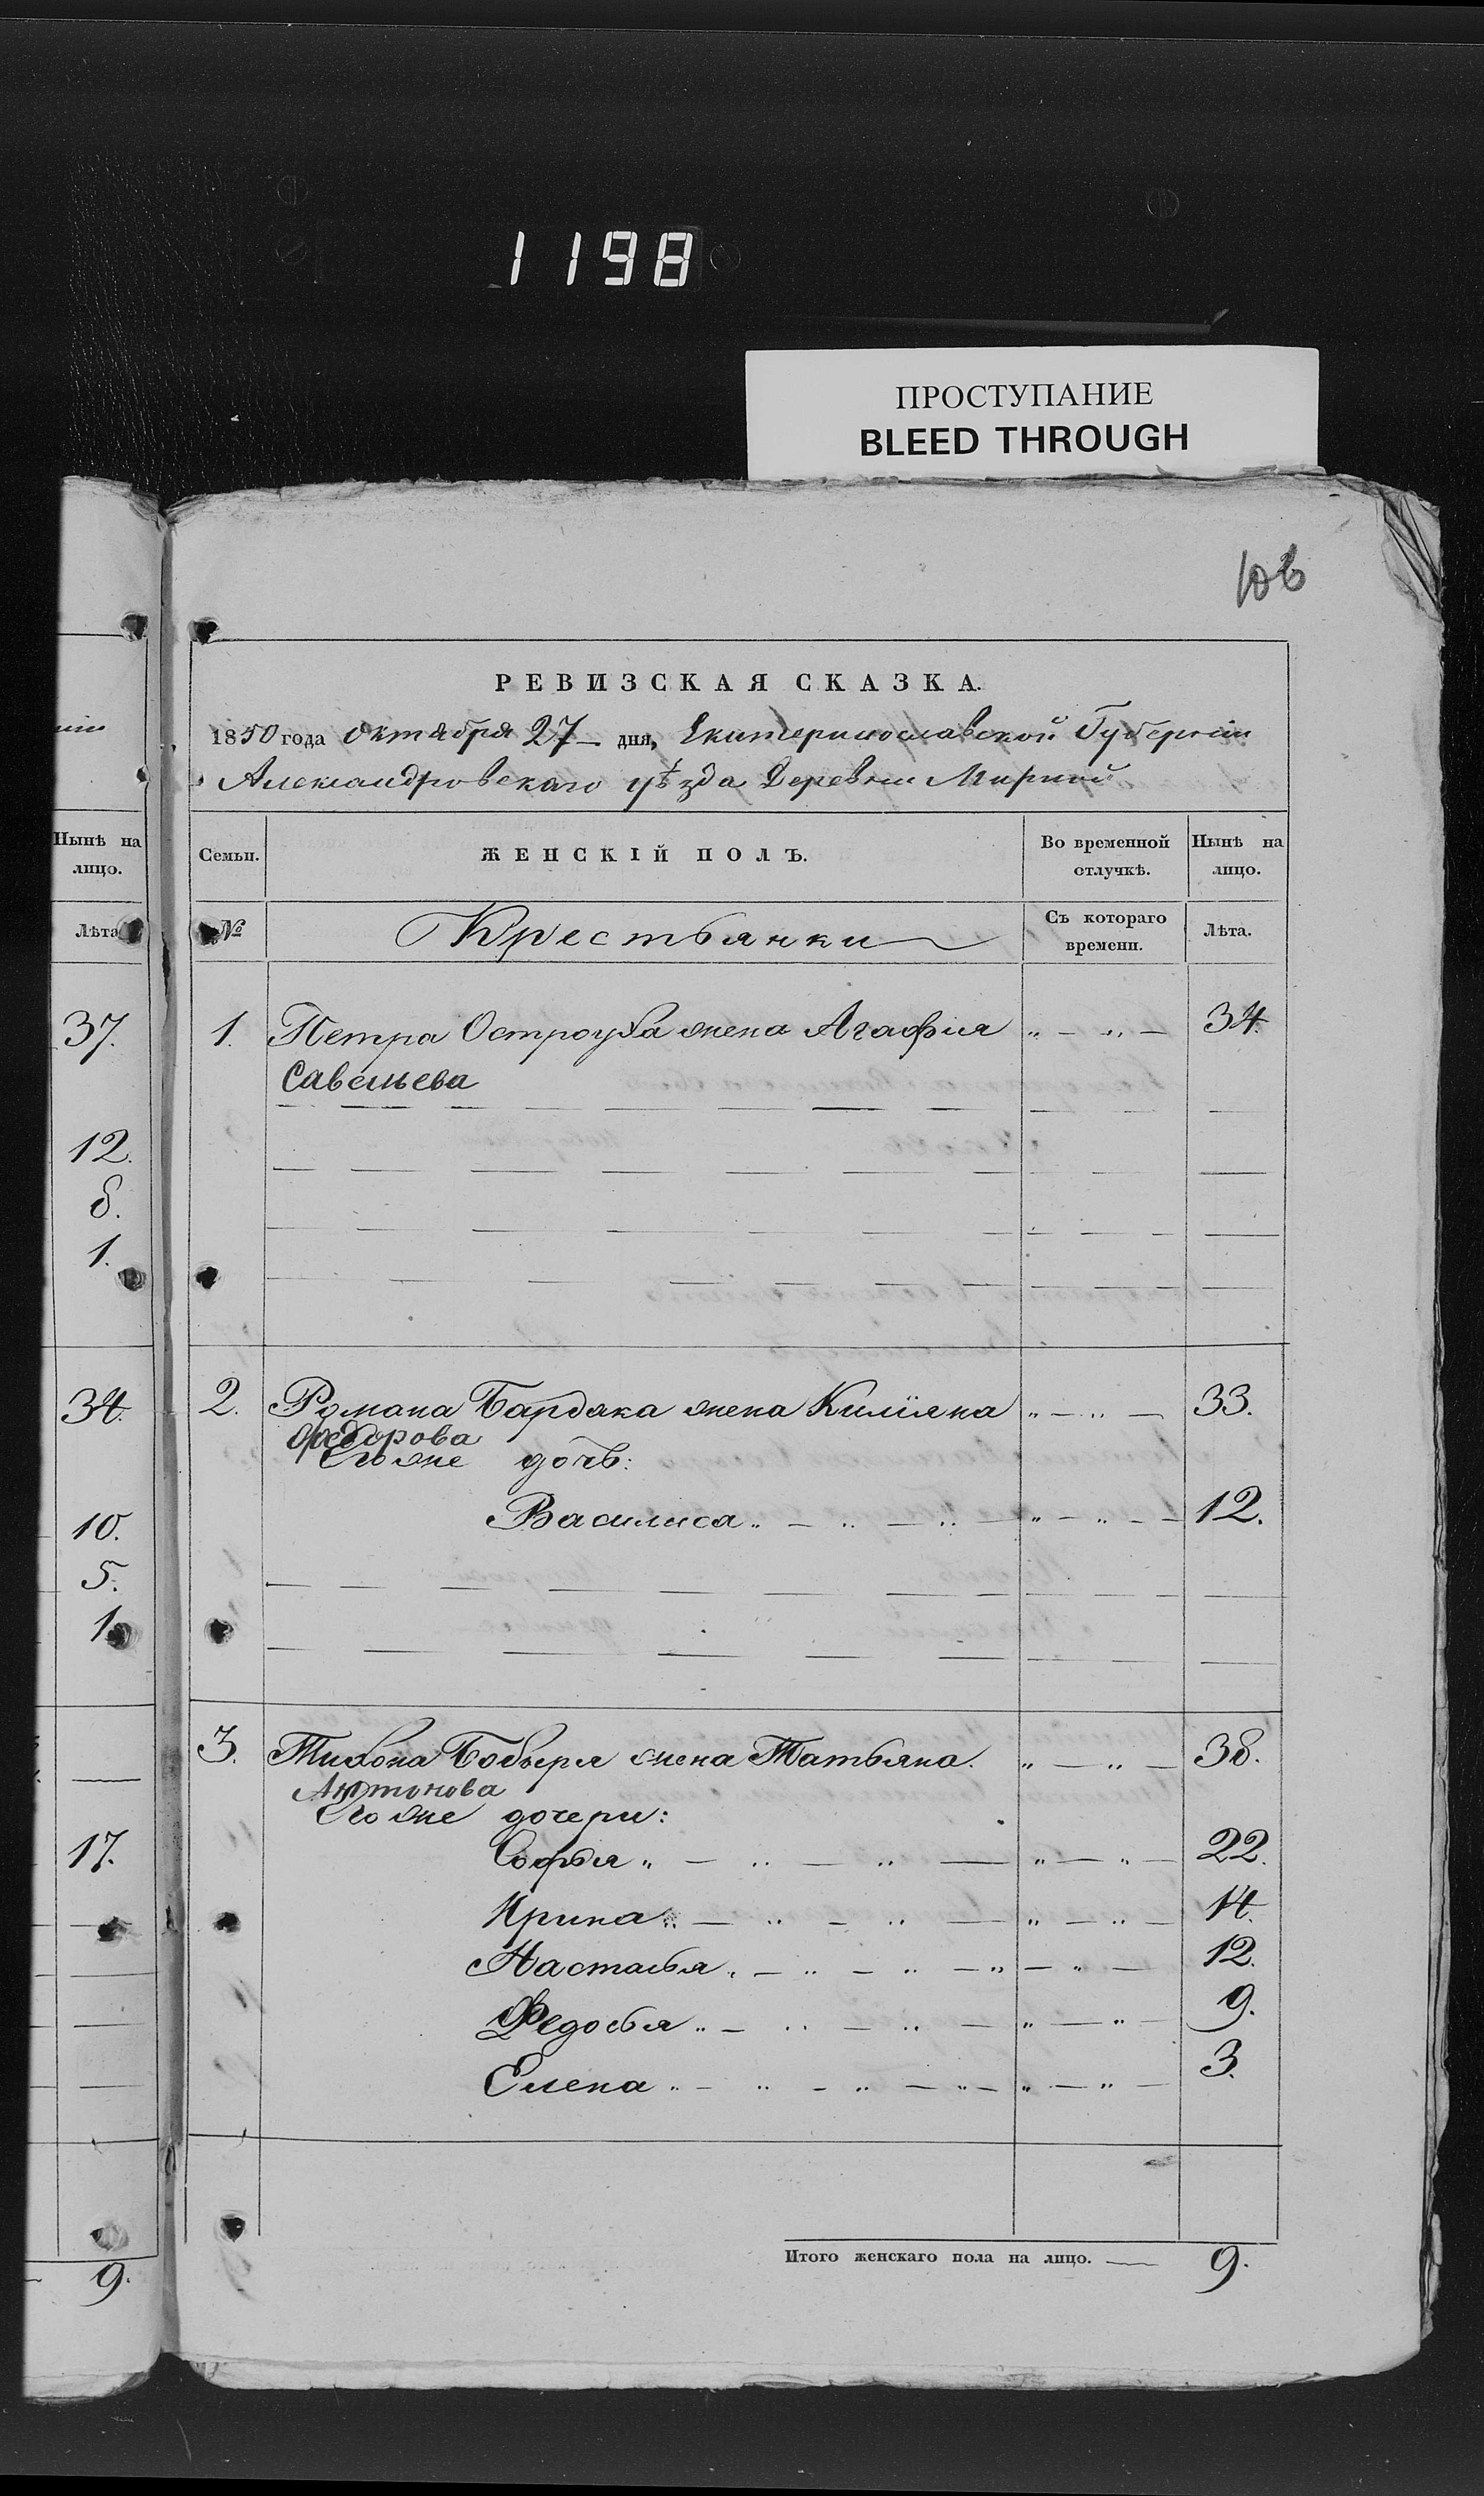 1198
ПРОСТУПАНИЕ
BLEED THROUGH
106
РЕВИЗСКАЯ СКАЗКА.
1850 года Октября 27 дня, Екатеринославской Губернiи
Александровскаго уѣзда Деревни Мирной
Нынѣ на лицо.
Лѣта
37.
12.
8.
1.
34.
10.
5.
1.
17.
9.
Семьи. ЖЕНСКIЙ ПОЛЪ. Во временной отлучкѣ. Нынѣ на лицо.
№ Крестьянки Съ котораго времени. Лѣта.
1. Петра Остроуха жена Агафiя 34.
Савельева
2. Романа Бардака жена Килiяна 33.
Федорова
Его же дочь:
Василиса 12.
3. Тихона Бобыря жена Татьяна. 38.
Антонова
Его же дочери:
Софья 22.
Ирина 14.
Настасья 12.
Федосья 9.
Елена 3.
Итого женскаго пола на лицо. 9.